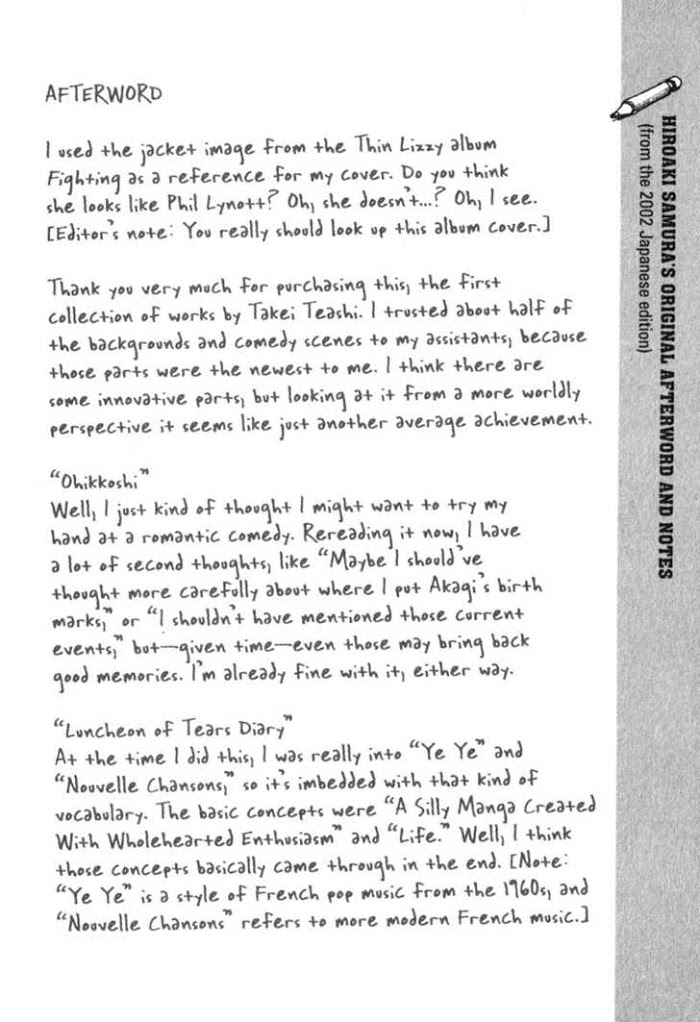 AFTERWORD
I used the jacket image from the Thin Lizzy album
Fighting as a reference for my cover. Do you think
she looks like Phil Lynott? Oh, she doesn't...? Oh, I see.
[Editor's note: You really should look up this album cover.]
Thank you very much for purchasing this, the first
collection of works by Takei Teashi. I trusted about half of
the backgrounds and comedy scenes to my assistants, because
those parts were the newest to me. I think there are
some innovative parts, but looking at it from a more worldly
perspective it seems like just another average achievement.
"Ohikkoshi"
Well, I just kind of thought I might want to try my
hand at a romantic comedy. Rereading it now, I have
a lot of second thoughts, like "Maybe I should've
thought more carefully about where I put Akagi's birth
marks," or "I shouldn't have mentioned those current
events," but—given time—even those may bring back
good memories. I'm already fine with it, either way.
"Luncheon of Tears Diary"
At the time I did this, I was really into "Ye Ye" and
"Nouvelle Chansons," so it's imbedded with that kind of
vocabulary. The basic concepts were "A Silly Manga Created
With Wholehearted Enthusiasm" and "Life." Well, I think
those concepts basically came through in the end. [Note:
"Ye Ye" is a style of French pop music from the 1960s, and
"Nouvelle Chansons" refers to more modern French music.]
HIROAKI SAMURA'S ORIGINAL AFTERWORD AND NOTES
(from the 2002 Japanese edition)